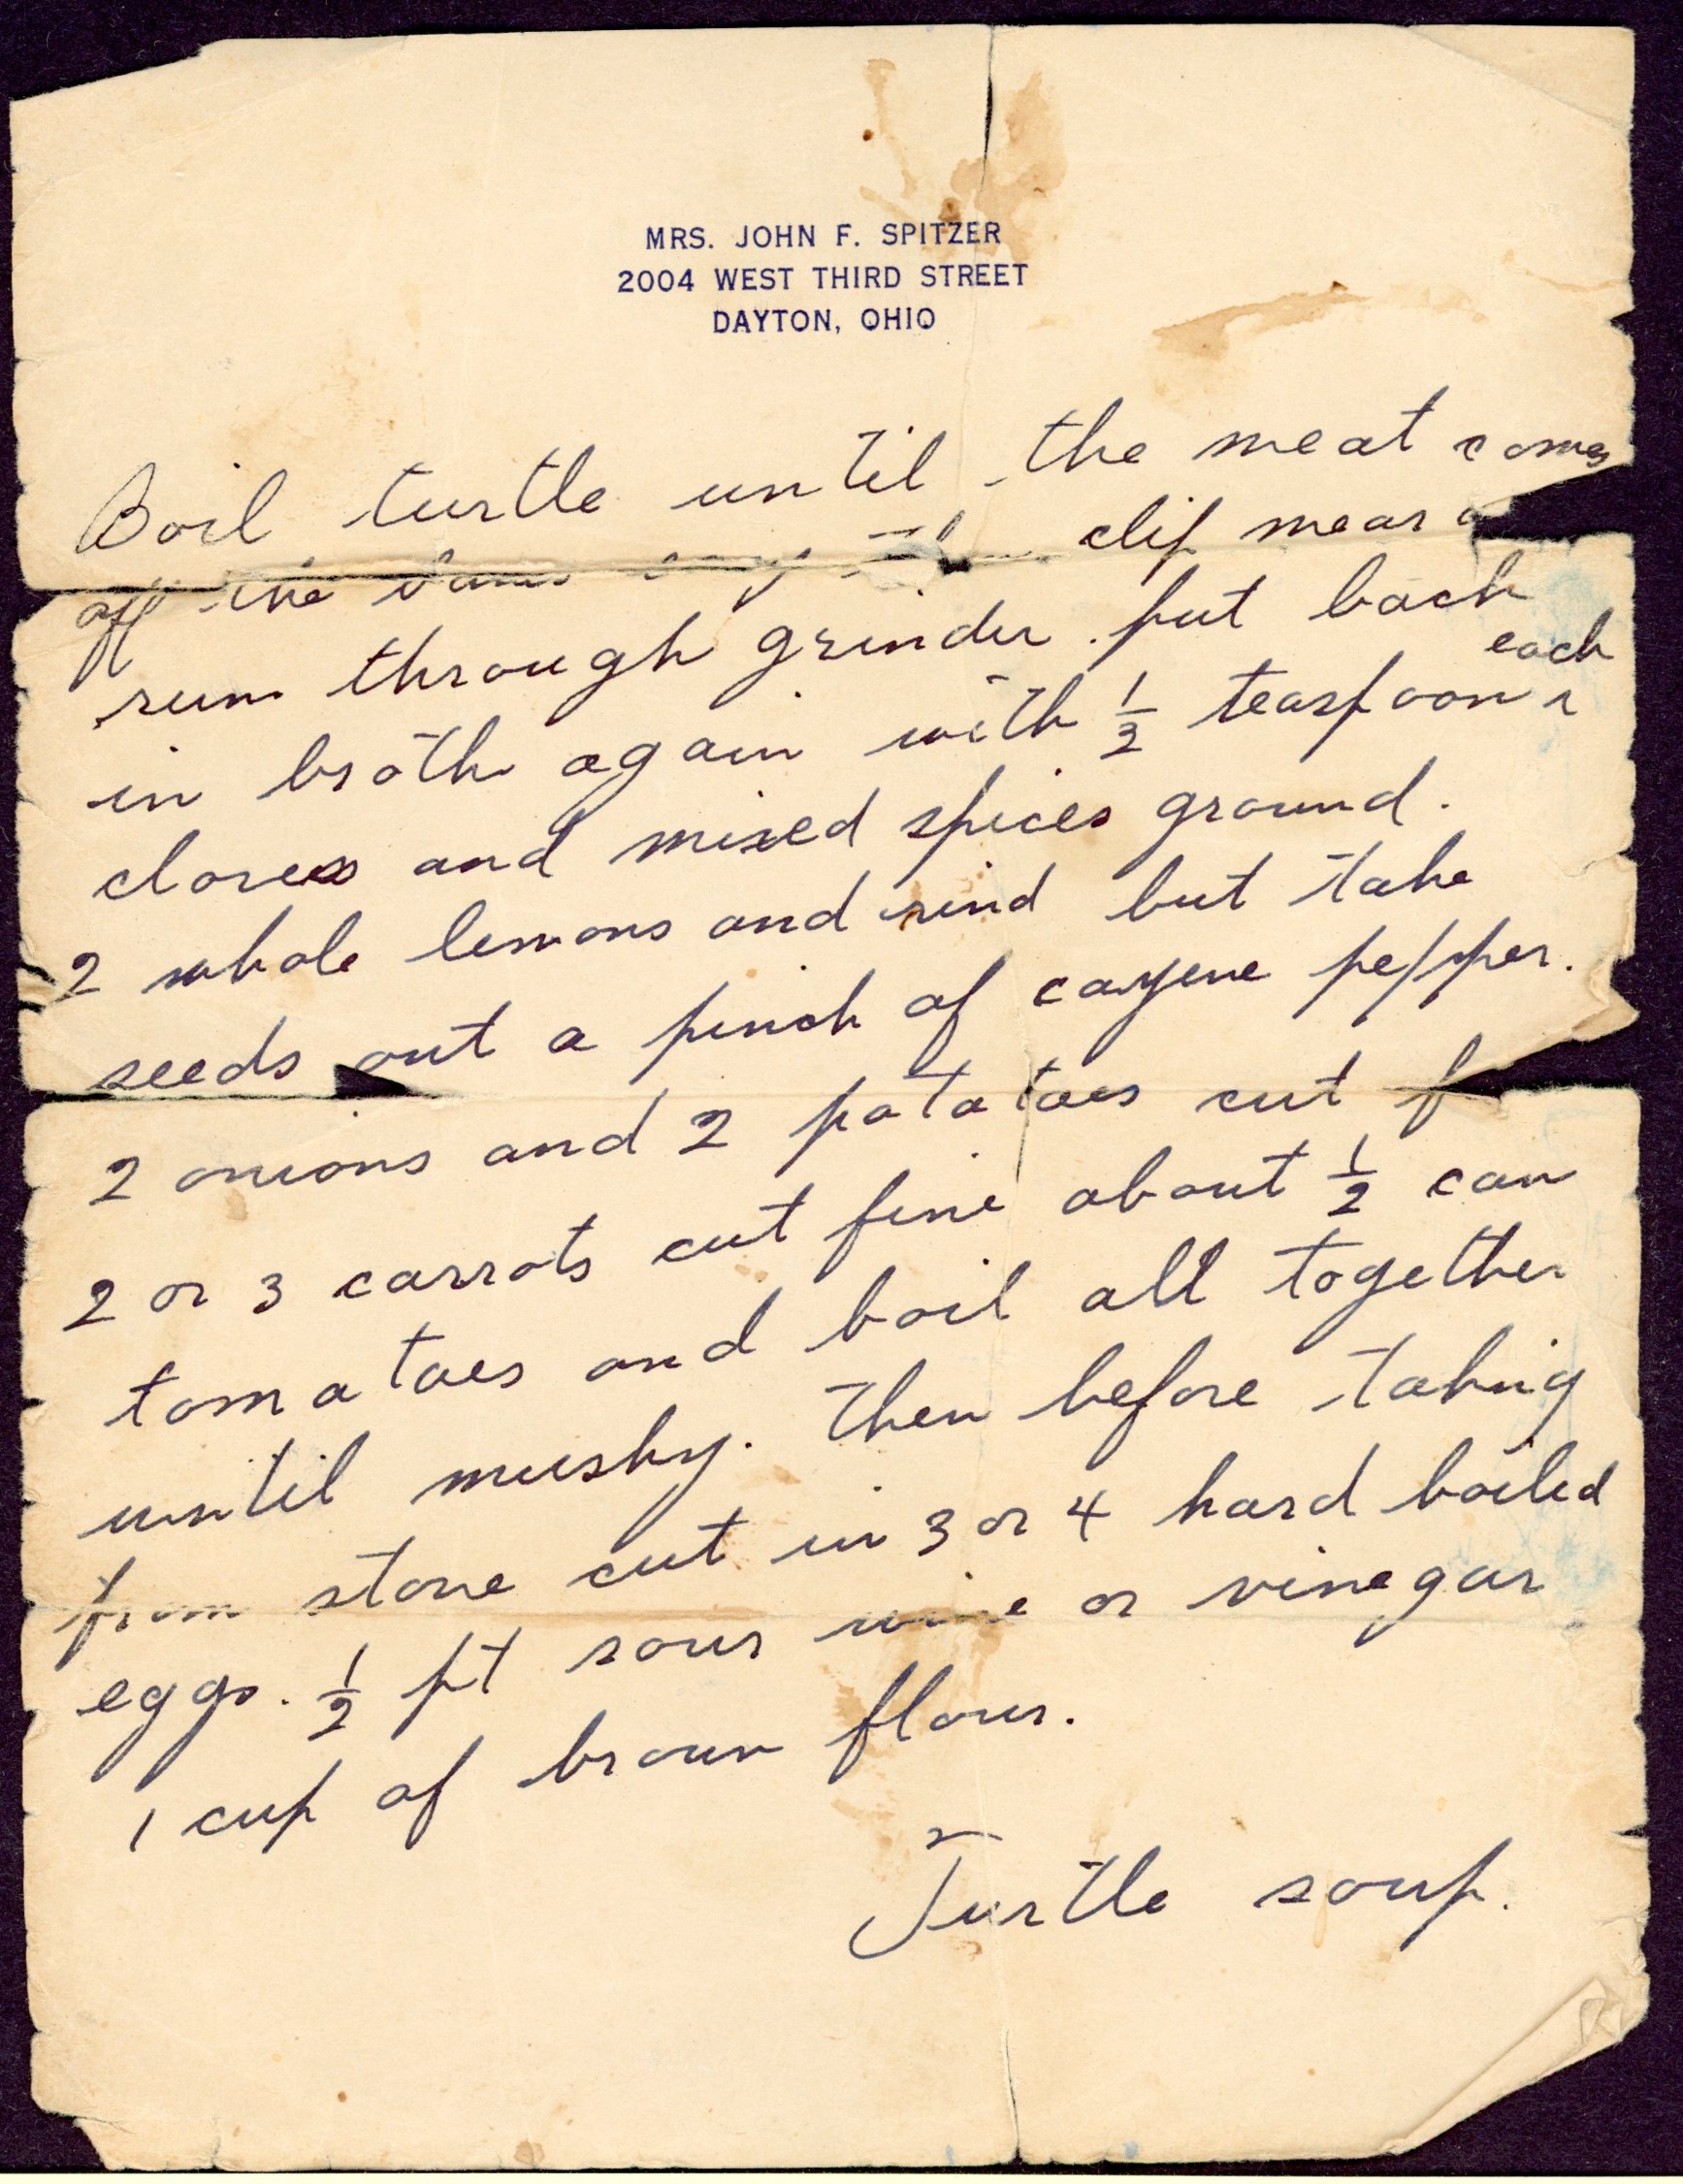 MRS. JOHN F. SPITZER
2004 WEST THIRD STREET
DAYTON, OHIO
Boil turtle until the meat comes
off the clip meat
run through grinder. put back
each
in broth again with 1/2 teaspoon
cloves and mixed spices ground.
2 whole lemons and rind but take
seeds out a pinch of cayene pepper.
2 onions and 2 potatoes cut f
2 or 3 carrots cut fine about 1/2 can
tomatoes and boil all together
until mushy. Then before taking
from stove cut in 3 or 4 hard boiled
eggs. 1/2 pt sour wine or vinegar
1 cup of brown flour.
Turtle soup.